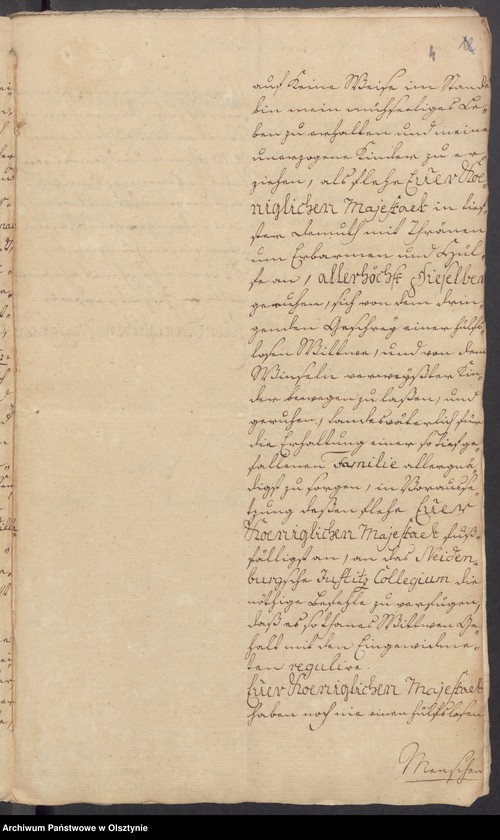 4 12
auf keine Weise im Stande
bin mein mühseeliges Le-
ben zu erhalten und meine
unerzogene Kinder zu er-
ziehen, als flehe Euer Koe-
niglichen Majestaet in tief-
ster Demuth mit Thränen
um Erbarmen und Hül-
fe an, allerhöchst Dieselben
geruhen, sich von dem drin-
genden Geschrey einer hülf-
losen Wittwe, und von dem
Winseln verwayßter Kin-
der bewegen zu laßen, und
geruhen, landesväterlich für
die Erhaltung einer so tief ge-
fallenen Familie allergnä-
digst zu sorgen, in Voraus se-
tzung deßen flehe Euer
Koeniglichen Majestaet fuß-
fälligst an, an das Neiden-
burgsche Justitz Collegium die
nöthige Befehle zu verfügen,
daß es sothanes Wittwen Ge-
halt mit den Eingewidme-
ten regulire.
Euer Koeniglichen Majestaet
haben noch nie einen hülfslosen
Menschen
Archiwum Państwowe w Olsztynie